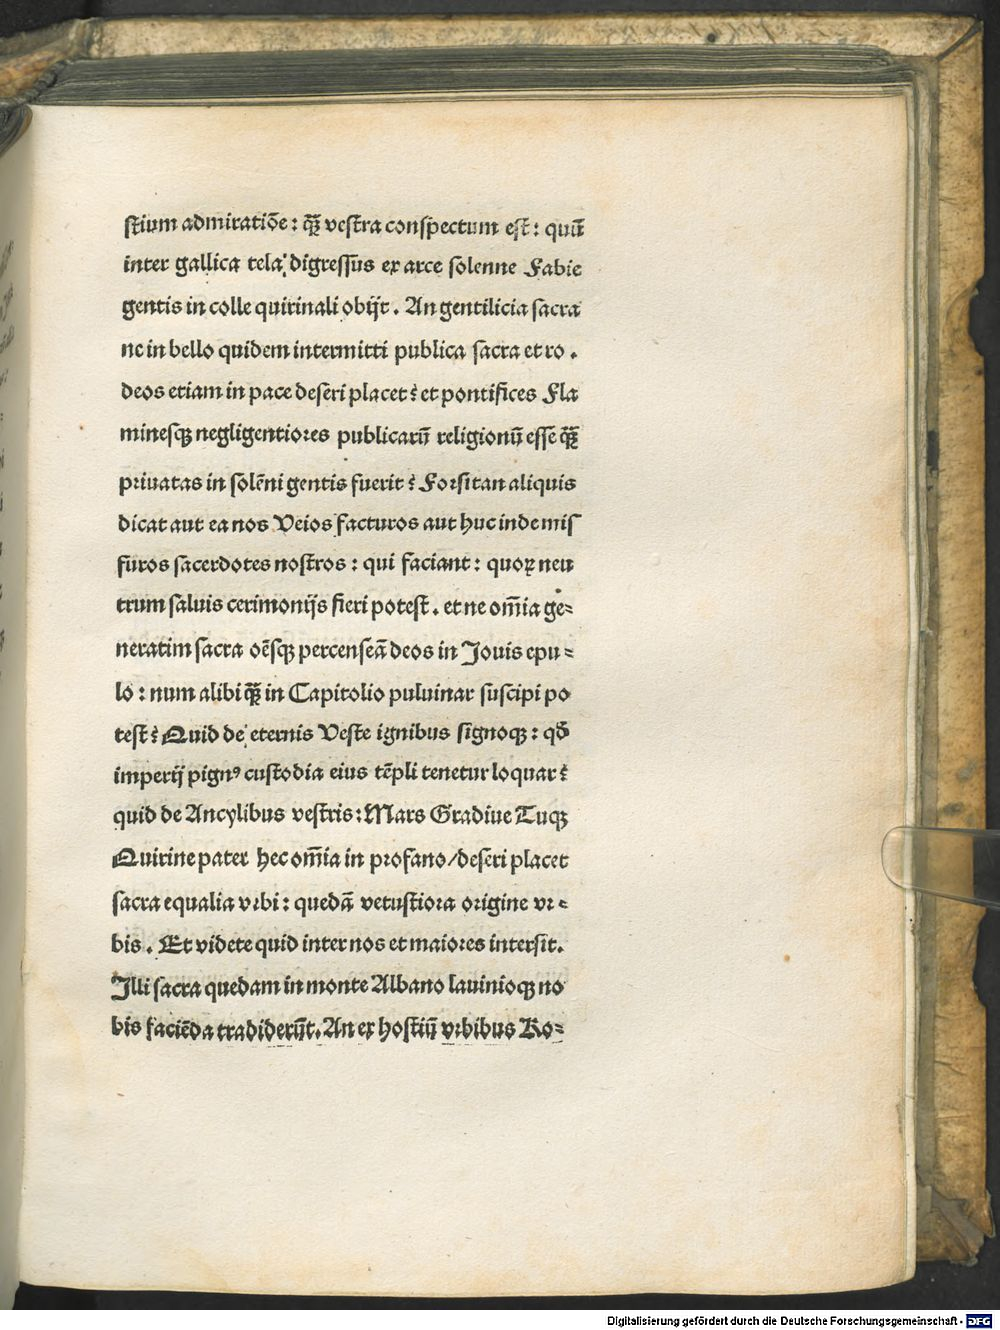 ſtium admiratiōe : qꝫ̄ veſtra conſpectum eſt : quū
inter gallica tela digreſſus ex arce ſolenne Fabie
gentis in colle quirinali obijt . An gentilicia ſacra
ne in bello quidem intermitti publica ſacra et ro .
deos etiam in pace deſeri placet ? et pontifices Fla
mineſqꝫ negligentiores publicarū religionū eſſe qꝫ̄
priuatas in ſolēni gentis fuerit ? Forſitan aliquis
dicat aut ea nos Veios facturos aut huc inde miſ
ſuros ſacerdotes noſtros : qui faciant : quoꝝ neu
trum ſaluis cerimonijs fieri poteſt . et ne om̄ia ge-
neratim ſacra oēſqꝫ percenſeā deos in Jouis epu-
lo : num alibi qꝫ̄ in Capitolio puluinar ſuſcipi po
teſt ? Quid de eternis Veſte ignibus ſignoqꝫ : qđ
imperij pignꝰ cuſtodia eius tēpli tenetur loquar ?
quid de Ancylibus veſtris : Mars Gradiue Tuqꝫ
Quirine pater hec om̄ia in profano/deſeri placet
ſacra equalia vrbi : quedā vetuſtiora origine vr-
bis . Et videte quid inter nos et maiores interſit.
Illi ſacra quedam in monte Albano lauinioqꝫ no
bis faciēda tradiderūt. An ex hoſtiū vrbibus Ro-
Digitalisierung gefördert durch die Deutsche Forschungsgemeinschaft - DFG